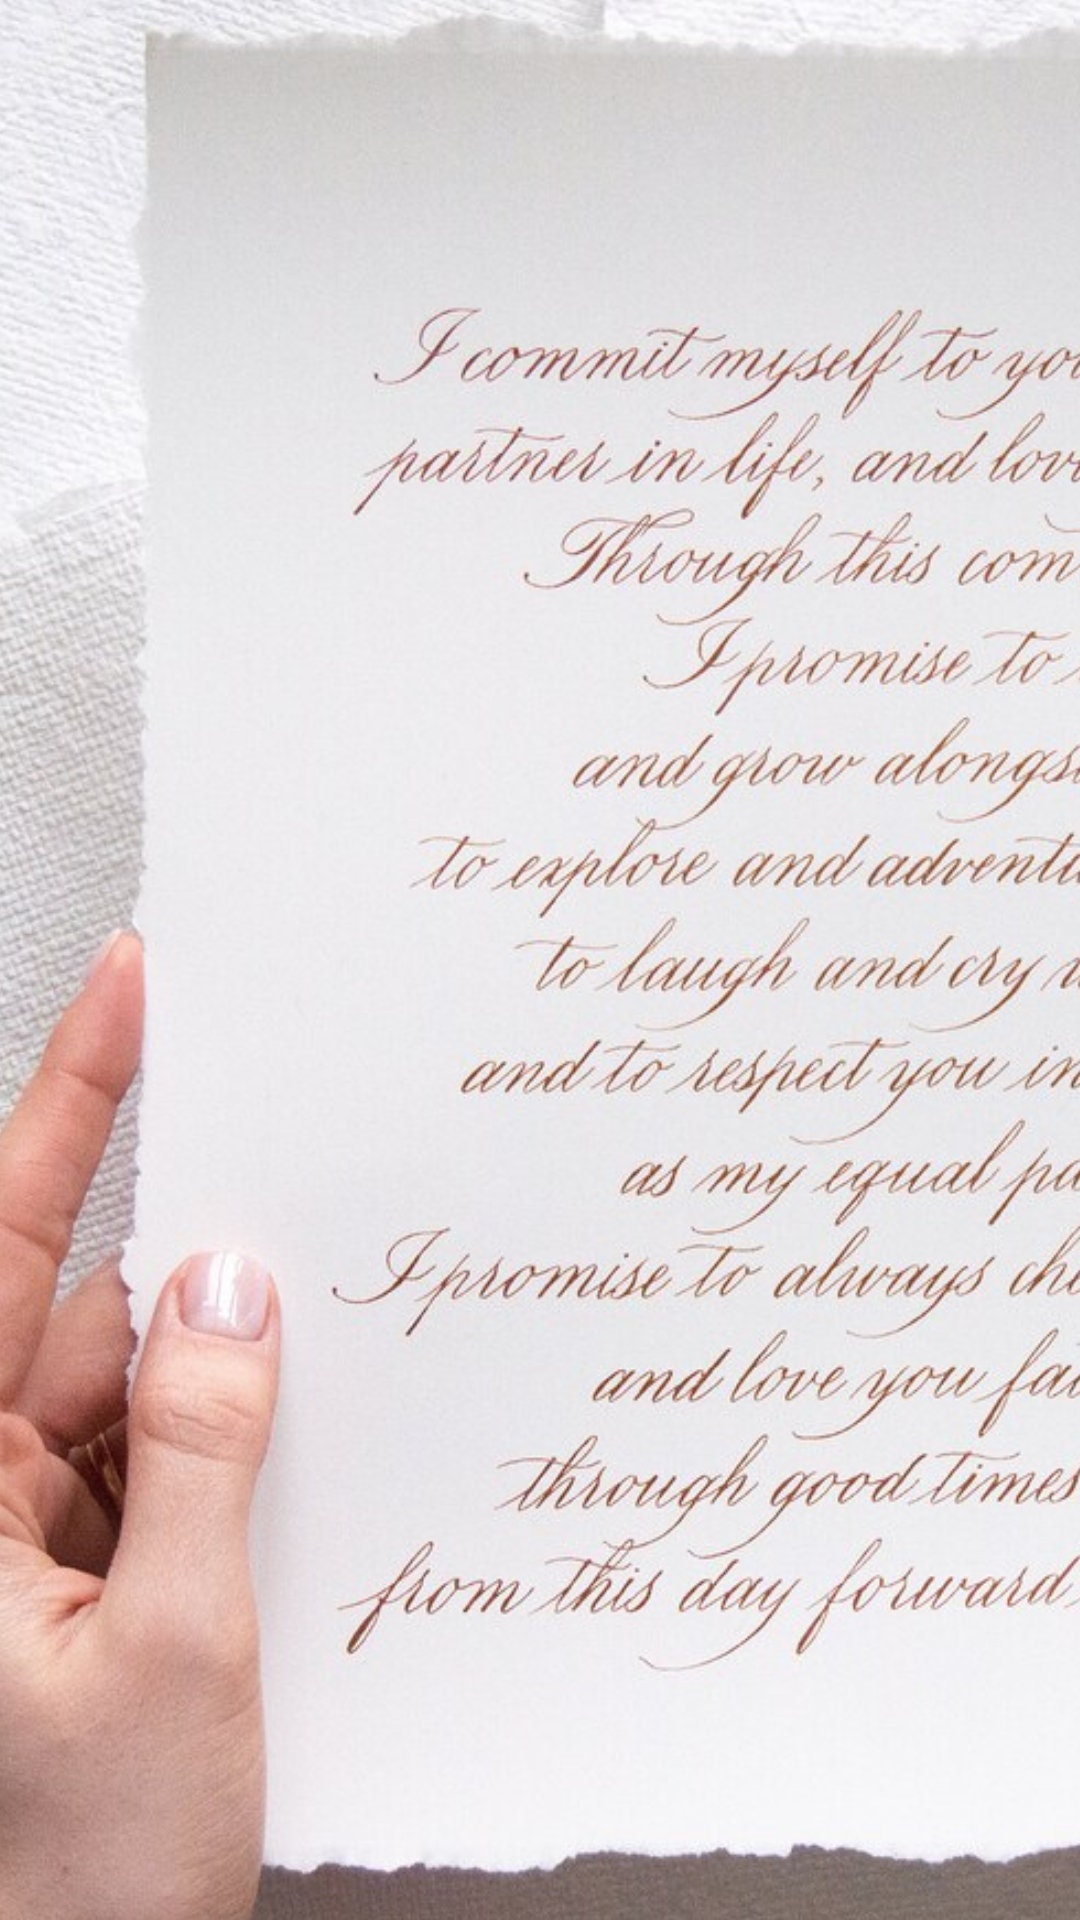 I commit myself to you
partner in life, and love
Through this com
I promise to
and grow alongsi
to explore and adventu
to laugh and cry
and to respect you in
as my equal pa
I promise to always che
and love you fai
through good times
from this day forward